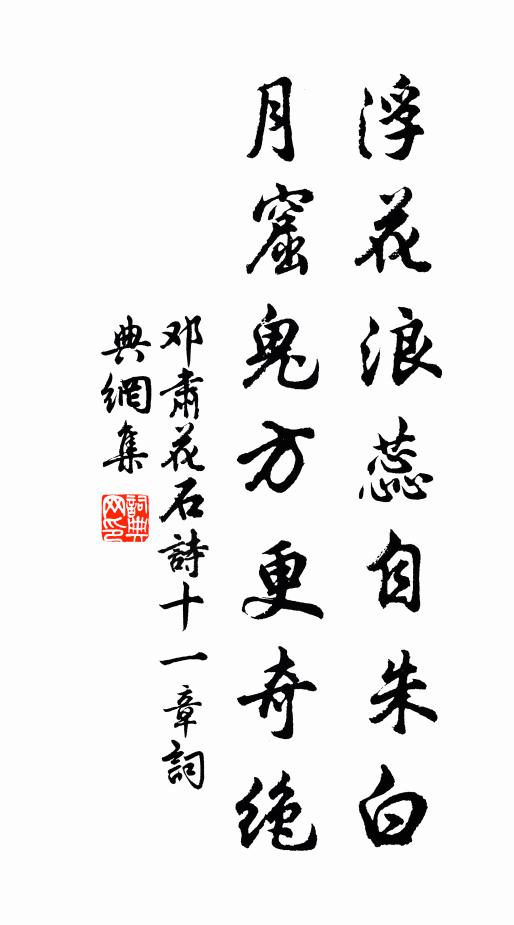 浮花浪蕊自朱白
月窟鬼方更奇绝
邓肃花石詩十一章詞
典網集
詞典
网印